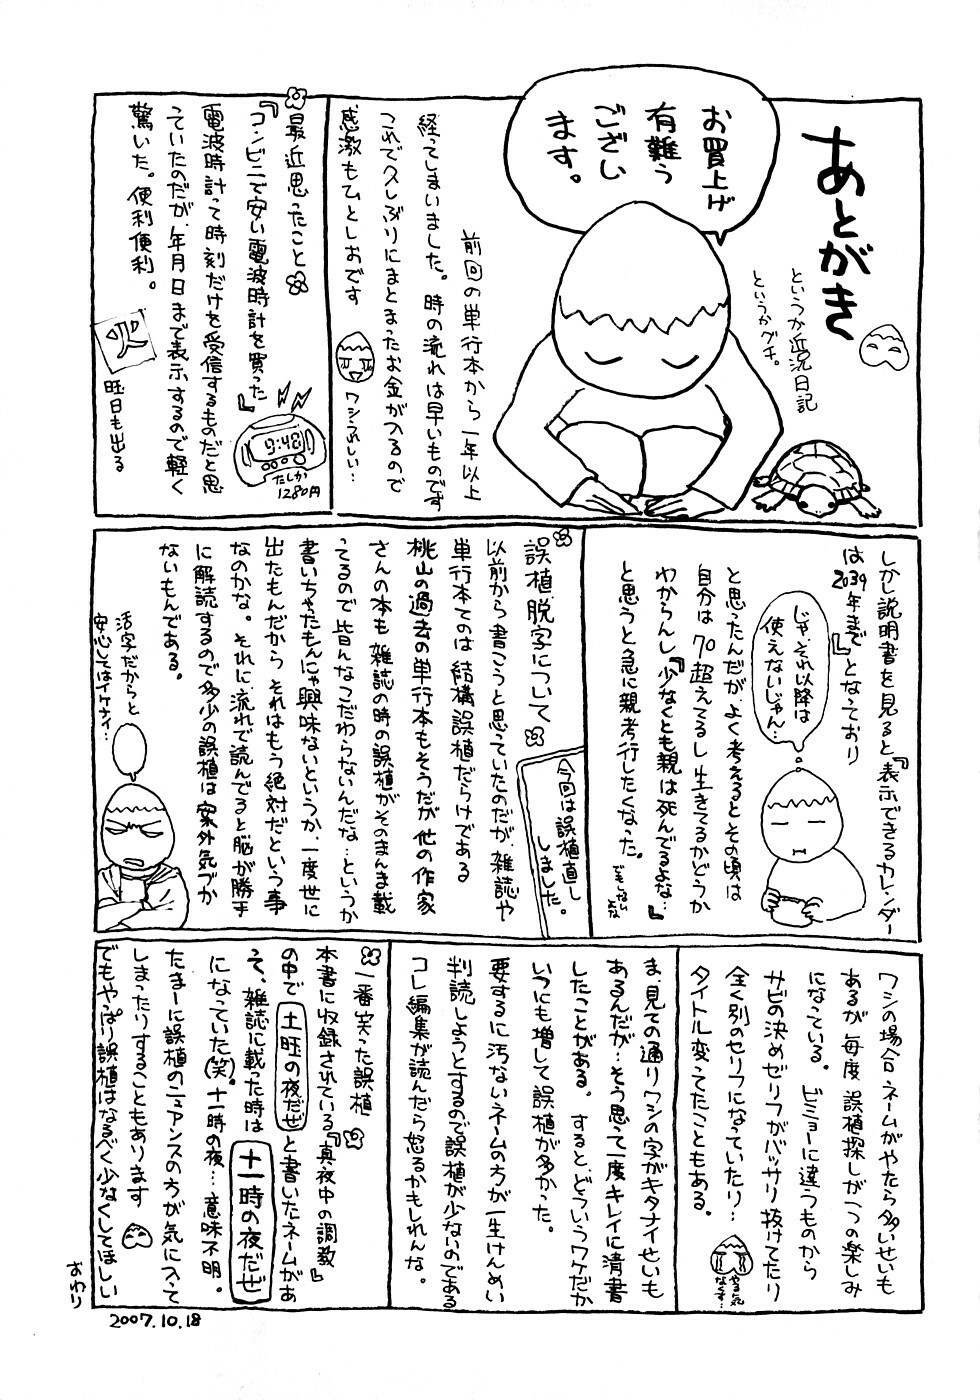 あとがき
というか近況日記
というかグチ。
お買上げ
有難う
ござい
ます。
前回の単行本から一年以上
経ってしまいました。時の流れは早いものです
これで久しぶりにまとまったお金が入るので
感激もひとしおです
ワシうれしい…
最近思ったこと
『コンビニで安い電波時計を買った』
電波時計って時刻だけを受信するものだと思
っていたのだが、年月日まで表示するので軽く
驚いた。便利便利。
9:48
たしか
1280円
火
曜日も出る
しかし説明書を見ると『表示できるカレンダー
は2039年まで』となっており
じゃ、それ以降は
使えないじゃん…
と思ったんだが、よく考えるとその頃は
自分は70超えてるし生きてるかどうか
わからんし『少なくとも親は死んでるよな…』
と思うと急に親孝行したくなった。
誤植脱字について
今回は誤植直し
しました。
以前から書こうと思っていたのだが、雑誌や
単行本てのは結構誤植だらけである
桃山の過去の単行本もそうだが他の作家
さんの本も雑誌の時の誤植がそのまんま載
ってるので皆んなこだわらないんだな…というか
書いちゃたもんにゃ興味ないというか、一度世に
出たもんだからそれはもう絶対だという事
なのかな。それに流れで読んでると脳が勝手
に解読するので多少の誤植は案外気づか
ないもんである。
活字だからと
安心してはイケナイ…
ワシの場合ネームがやたら多いせいも
あるが毎度誤植探しが一つの楽しみ
になっている。ビミョーに違うものから
サビの決めゼリフがバッサリ抜けてたり
全く別のセリフになっていたり…
タイトル変ってたこともある。
やる気
なくす…
ま、見ての通りワシの字がキタナイせいも
あるんだが…そう思って一度キレイに清書
したことがある。すると、どういうワケだか
いつにも増して誤植が多かった。
要するに汚ないネームの方が一生けんめい
判読しようとするので誤植が少ないのである
コレ編集が読んだら怒るかもしれんな。
一番笑った誤植
本書に収録されている『真夜中の調教』
の中で土旺の夜だぜと書いたネームがあ
って、雑誌に載った時は十一時の夜だぜ
になっていた(笑)。十一時の夜…意味不明。
たまーに誤植のニュアンスの方が気に入って
しまったりすることもあります
でもやっぱり誤植はなるべく少なくしてほしい
おわり
2007.10.18